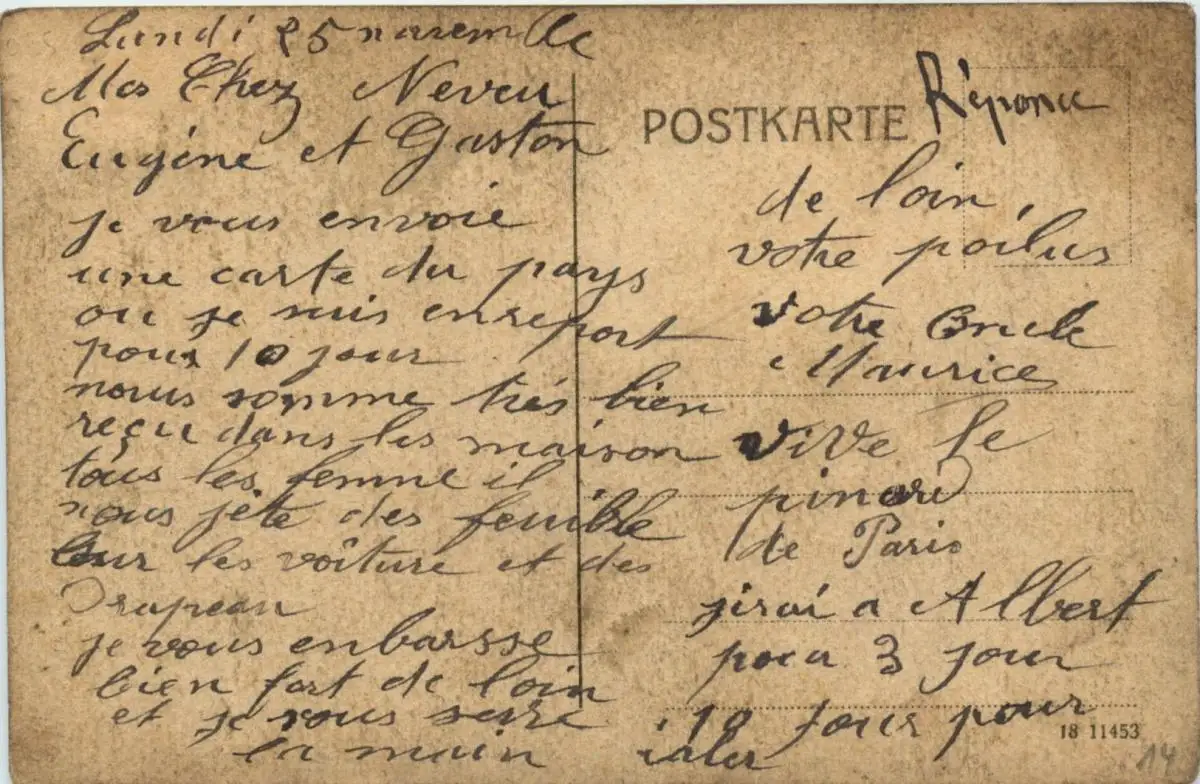 Lundi 25 novemble
Mes Chez Neveu
Eugène et Gaston
je vous envoie
une carte du pays
ou je suis enreport
pour 10 jour
nous somme très bien
reçu dans les maison
tous les femme il
nous jete des feuible
sur les voiture et des
Drapeau
je vous enbarsse
bien fort de loin
et je vous serre
la main
POSTKARTE
Réponce
de loin,
votre poilus
votre Oncle
Maurice
ViVe le
pinard
de Paris
jirai a Albert
pour 3 jour
10 jour pour
ialer
18 11453
14